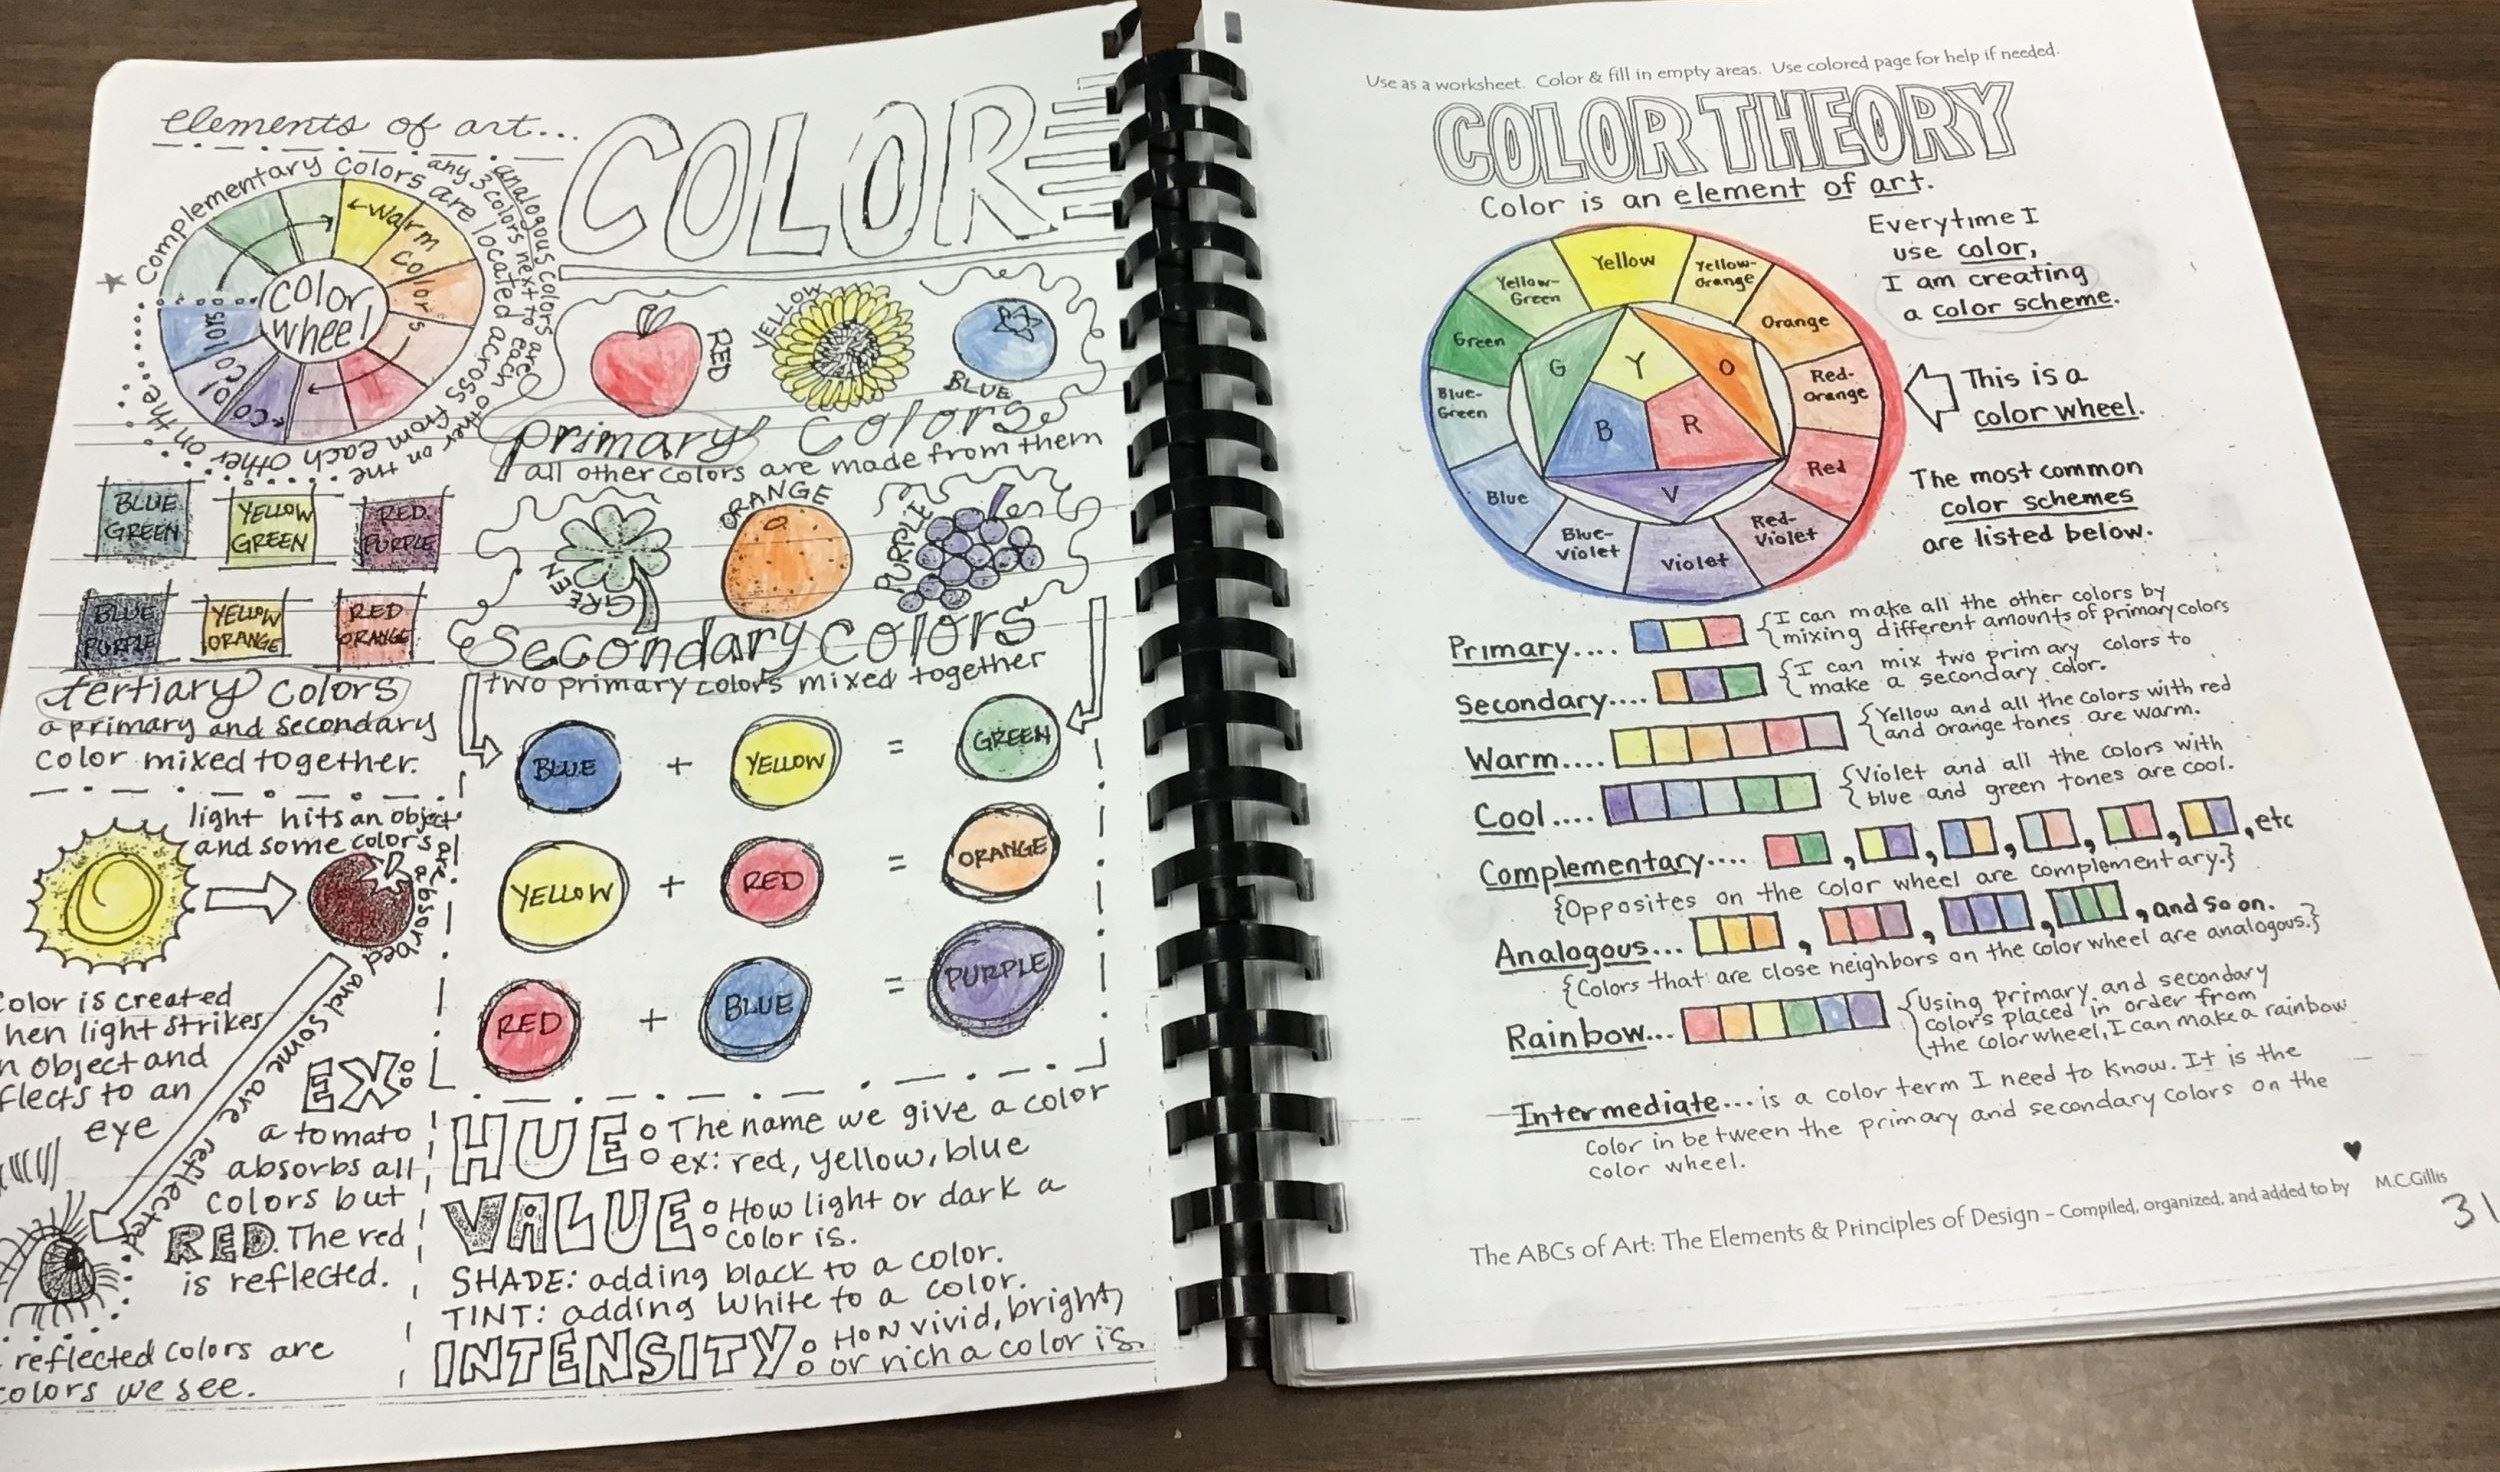 elements of art...
COLOR
Complementary colors are located across from each other on the
analogous colors are
any 3 colors next to each other on the
warm colors
color
wheel
RED
YELLOW
BLUE
primary colors
all other colors are made from them
BLUE
GREEN
YELLOW
GREEN
RED
PURPLE
BLUE
PURPLE
YELLOW
ORANGE
RED
ORANGE
tertiary colors
a primary and secondary
color mixed together.
GREEN
ORANGE
PURPLE
secondary colors
two primary colors mixed together
BLUE + YELLOW = GREEN
YELLOW + RED = ORANGE
RED + BLUE = PURPLE
light hits an object
and some colors are absorbed and some are reflected
color is created
hen light strikes
n object and
flects to an
eye
EX:
a tomato
absorbs all
colors but
RED. The red
is reflected.
reflected colors are
colors we see.
HUE: The name we give a color
ex: red, yellow, blue
VALUE: How light or dark a
color is.
SHADE: adding black to a color.
TINT: adding white to a color.
INTENSITY: HoN vivid, bright,
or rich a color is.
Use as a worksheet. Color & fill in empty areas. Use colored page for help if needed.
COLOR THEORY
Color is an element of art.
Yellow
Yellow-
Orange
Orange
Red-
Orange
Red
Red-
Violet
Violet
Blue-
Violet
Blue
Blue-
Green
Green
Yellow-
Green
G
Y
O
B
R
V
Everytime I
use color,
I am creating
a color scheme.
This is a
color wheel.
The most common
color schemes
are listed below.
Primary.... {I can make all the other colors by
mixing different amounts of primary colors
Secondary.... {I can mix two primary colors to
make a secondary color.
Warm.... {Yellow and all the colors with red
and orange tones are warm.
Cool.... {Violet and all the colors with
blue and green tones are cool.
Complementary.... , , , , , , etc
{Opposites on the color wheel are complementary.}
Analogous... , , , , and so on.
{Colors that are close neighbors on the color wheel are analogous.}
Rainbow... {Using primary and secondary
colors placed in order from
the color wheel, I can make a rainbow
Intermediate... is a color term I need to know. It is the
color in between the primary and secondary colors on the
color wheel.
The ABCs of Art: The Elements & Principles of Design - Compiled, organized, and added to by M.C.Gillis
31